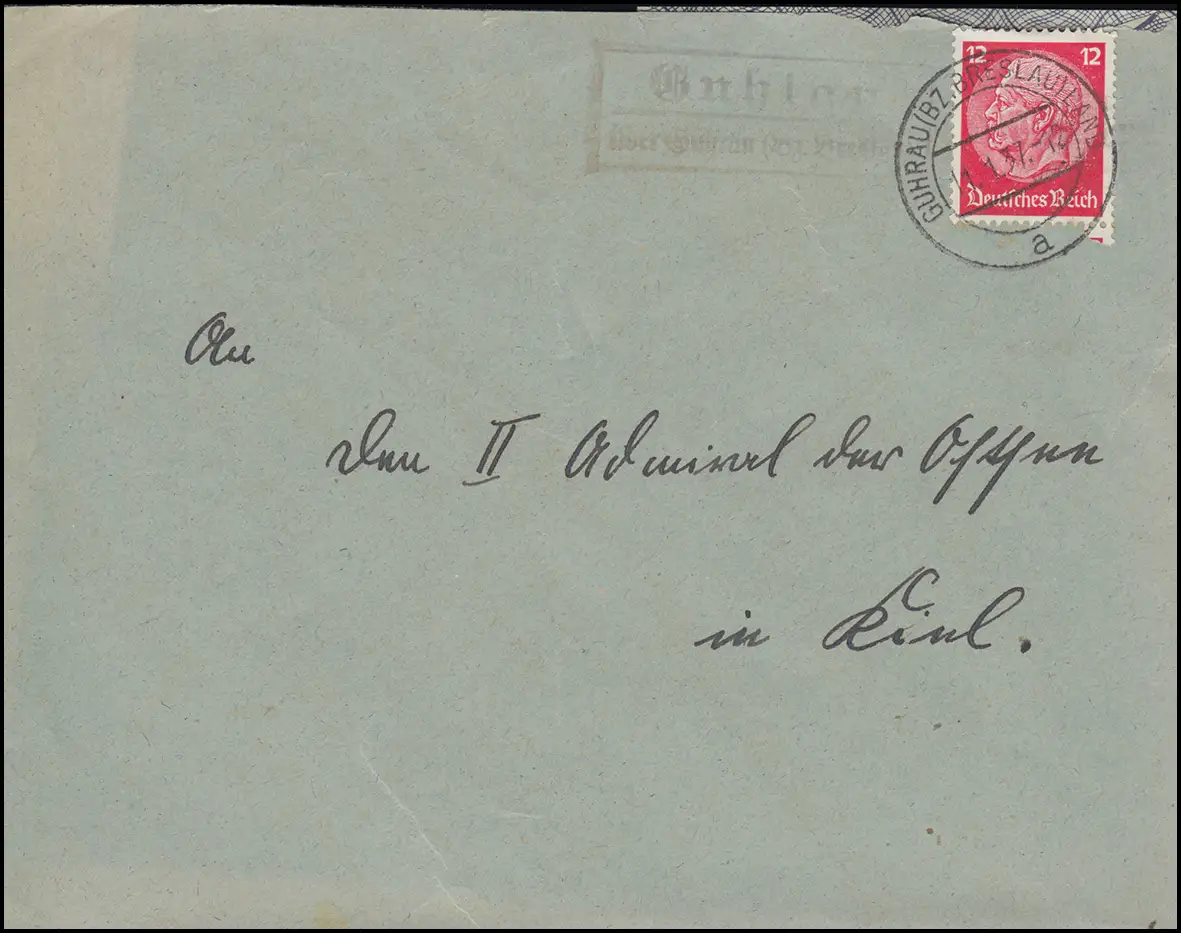 12 12
GUHRAU (BZ. BRESLAU) LAND
Deutsches Reich
a
über Guhrau (Bz. Breslau
An
den II Admiral der Ostsee
in Kiel.